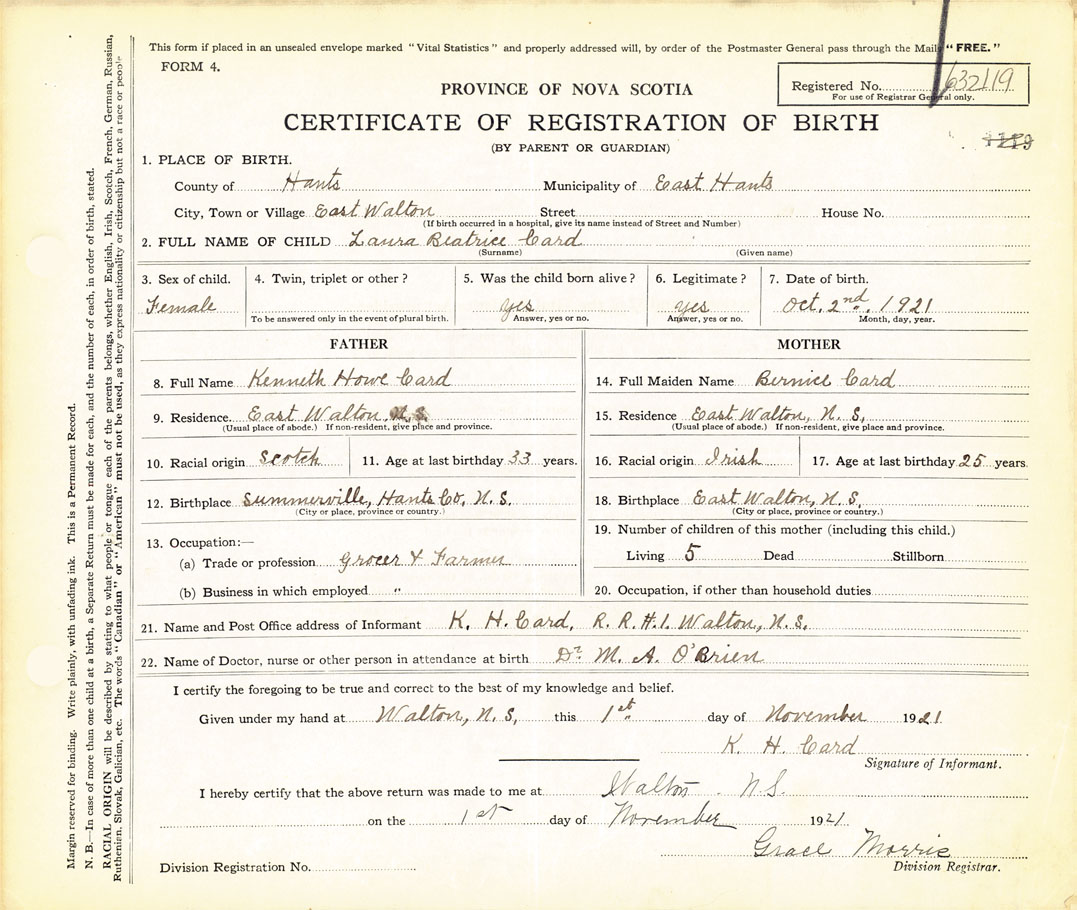 This form if placed in an unsealed envelope marked "Vital Statistics" and properly addressed will, by order of the Postmaster General pass through the Mails "FREE."
FORM 4.
PROVINCE OF NOVA SCOTIA
Registered No. 632119
For use of Registrar General only.
CERTIFICATE OF REGISTRATION OF BIRTH
(BY PARENT OR GUARDIAN)
1. PLACE OF BIRTH.
County of Hants Municipality of East Hants
City, Town or Village East Walton Street House No.
(If birth occurred in a hospital, give its name instead of Street and Number)
2. FULL NAME OF CHILD Laura Beatrice Card
(Surname) (Given name)
3. Sex of child. 4. Twin, triplet or other? 5. Was the child born alive? 6. Legitimate? 7. Date of birth.
Female yes yes Oct. 2nd, 1921
To be answered only in the event of plural birth. Answer, yes or no. Answer, yes or no. Month, day, year.
FATHER MOTHER
8. Full Name Kenneth Howe Card 14. Full Maiden Name Bernice Card
9. Residence. East Walton N.S. 15. Residence East Walton, N.S,
(Usual place of abode.) If non-resident, give place and province. (Usual place of abode.) If non-resident, give place and province.
10. Racial origin Scotch 11. Age at last birthday 33 years. 16. Racial origin Irish 17. Age at last birthday 25 years.
12. Birthplace Summerville, Hants Co, N.S. 18. Birthplace East Walton, N.S,
(City or place, province or country.) (City or place, province or country.)
19. Number of children of this mother (including this child.)
13. Occupation:—
(a) Trade or profession Grocer & Farmer Living 5 Dead Stillborn
(b) Business in which employed " 20. Occupation, if other than household duties
21. Name and Post Office address of Informant K. H. Card, R.R.#1. Walton, N.S.
22. Name of Doctor, nurse or other person in attendance at birth Dr. M. A. O'Brien
I certify the foregoing to be true and correct to the best of my knowledge and belief.
Given under my hand at Walton, N.S, this 1st day of November 1921
K. H. Card
Signature of Informant.
I hereby certify that the above return was made to me at Walton N.S.
on the 1st day of November 1921
Grace Morris
Division Registrar.
Division Registration No.
Margin reserved for binding. Write plainly, with unfading ink. This is a Permanent Record.
N. B.—In case of more than one child at a birth, a Separate Return must be made for each, and the number of each, in order of birth, stated.
RACIAL ORIGIN will be described by stating to what people or tongue each of the parents belongs, whether English, Irish, Scotch, French, German, Russian,
Ruthenian, Slovak, Galician, etc. The words "Canadian" or "American" must not be used, as they express nationality or citizenship but not a race or people